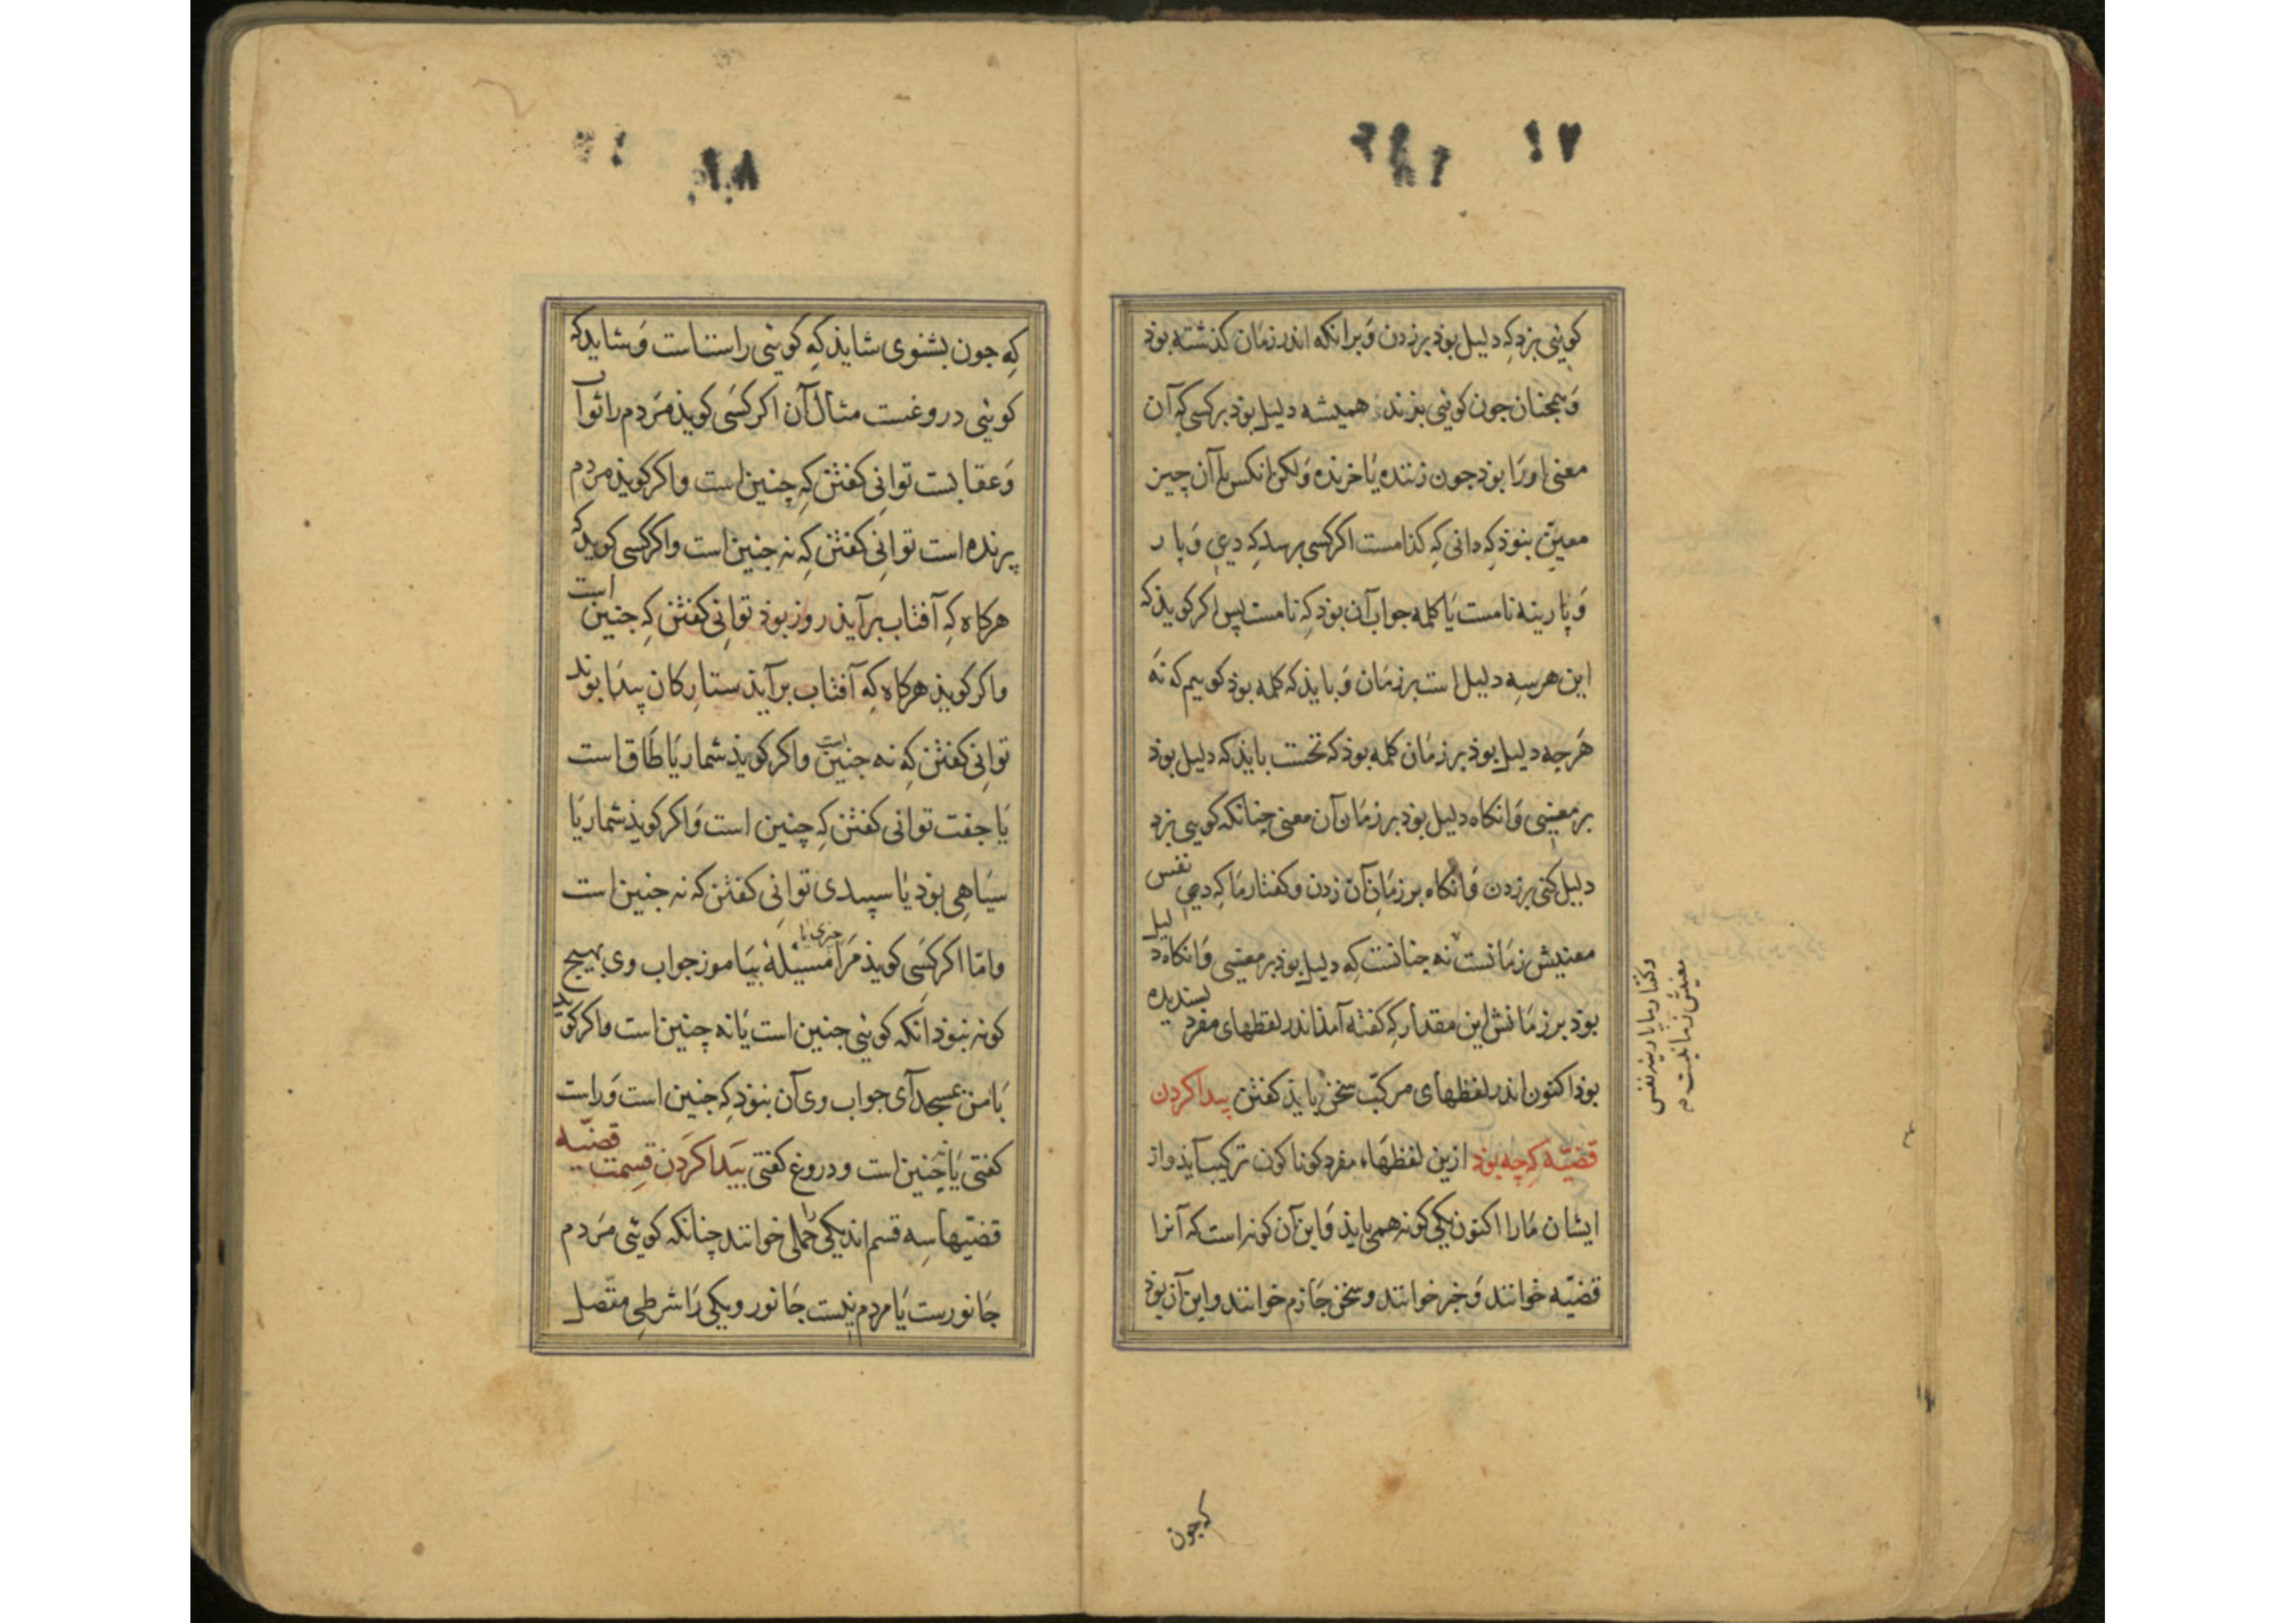 ۱۷
کوئی بزد که دلیل بوذ بر زدن وَ بر انکه اندر زمان کذشته بوذ
وَ همجنان جون کوئی بزند همیشه دلیل بوذ بر کسی که آن
معنی او را بوذ جون زننده یا خرنده وَ لکن انکس با آن چیز
معیّن بنوذ که دانی که کذامست اکر کسی برسد که دی وَ پار
وَ پارینه نامست یا کلمه جواب آن بوذ که نامست پس اکر کویذ که
این هر سه دلیل است بر زمان وَ بایذ که کلمه بوذ کوییم که نه
هر جه دلیل بوذ بر زمان کلمه بوذ که تخست بایذ که دلیل بوذ
بر معنیی وَ انکاه دلیل بوذ بر زمان آن معنی چنانکه کویی بزد
دلیل کنی بر زدن وَ انکاه بر زمان آن زدن و کفتار ما که دی نفس
معنیش زمانست نه چنانست که دلیل بوذ بر معنیی وَ انکاه دلیل
بوذ بر زمانش این مقدار که کفته آمذ اندر لفظهای مفرد بسندیده
بوذ اکنون اندر لفظهای مرکّب سخن بایذ کفتن پیدا کردن
قضیّه که چه بوذ ازین لفظهاء مفرد کوناکون ترکیب آیذ و از
ایشان ما را اکنون یکی کونه همی بایذ وَ این آن کونه است که آنرا
قضیّه خوانند وَ خبر خوانند و سخن جازم خوانند و این آن بوذ
وکفتار ما پارینه نفس
معنیش زمانیست م
که جون
۱۸
که جون بشنوی شایذ که کوئی راستاست وَ شایذ که
کوئی دروغست مثال آن اکر کسی کویذ مردم را ثواب
وَ عقابست توانی کفتن که چنین است و اکر کویذ مردم
پرنده است توانی کفتن که نه جنین است و اکر کسی کویذ که
هرکاه که آفتاب برآیذ روز بوذ توانی کفتن که جنین است
و اکر کویذ هرکاه که آفتاب برآیذ ستارکان پیدا بوند
توانی کفتن که نه جنین است و اکر کویذ شمار یا طاق است
یا جفت توانی کفتن که چنین است وَ اکر کویذ شمار یا
سیاهی بوذ یا سپیدی توانی کفتن که نه جنین است
و امّا اکر کسی کویذ مرا چیزی یا مسیلهٔ بیاموز جواب وی بهیج
کونه بنوذ انکه کوئی جنین است یا نه چنین است و اکر کویذ
با من بمسجد آی جواب وی آن بنوذ که جنین است وَ راست
کفتی یا چنین است و دروغ کفتی پیدا کردن قسمت قضیّه
قضیّها سه قسم اند یکی را حملی خوانند چنانکه کوئی مردم
جانورست یا مردم نیست جانور و یکی را شرطی متّصل